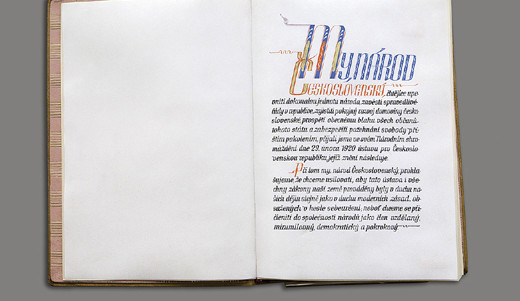 My, národ
Československý, chtějíce upe-
vniti dokonalou jednotu národa, zavésti spravedlivé
řády v republice, zajistiti pokojný rozvoj domoviny česko
slovenské, prospěti obecnému blahu všech občanů
tohoto státu a zabezpečiti požehnání svobody pří-
štím pokolením, přijali jsme ve svém Národním shro-
máždění dne 29. února 1920 ústavu pro Českoslo
venskou republiku, jejíž znění následuje.
Při tom my, národ Československý, prohla
šujeme, že chceme usilovati, aby tato ústava i vše
chny zákony naší země prováděny byly v duchu na
šich dějin stejně jako v duchu moderních zásad, ob-
sažených v hesle sebeurčení, neboť chceme se při-
členiti do společnosti národů jako člen vzdělaný,
mírumilovný, demokratický a pokrokový